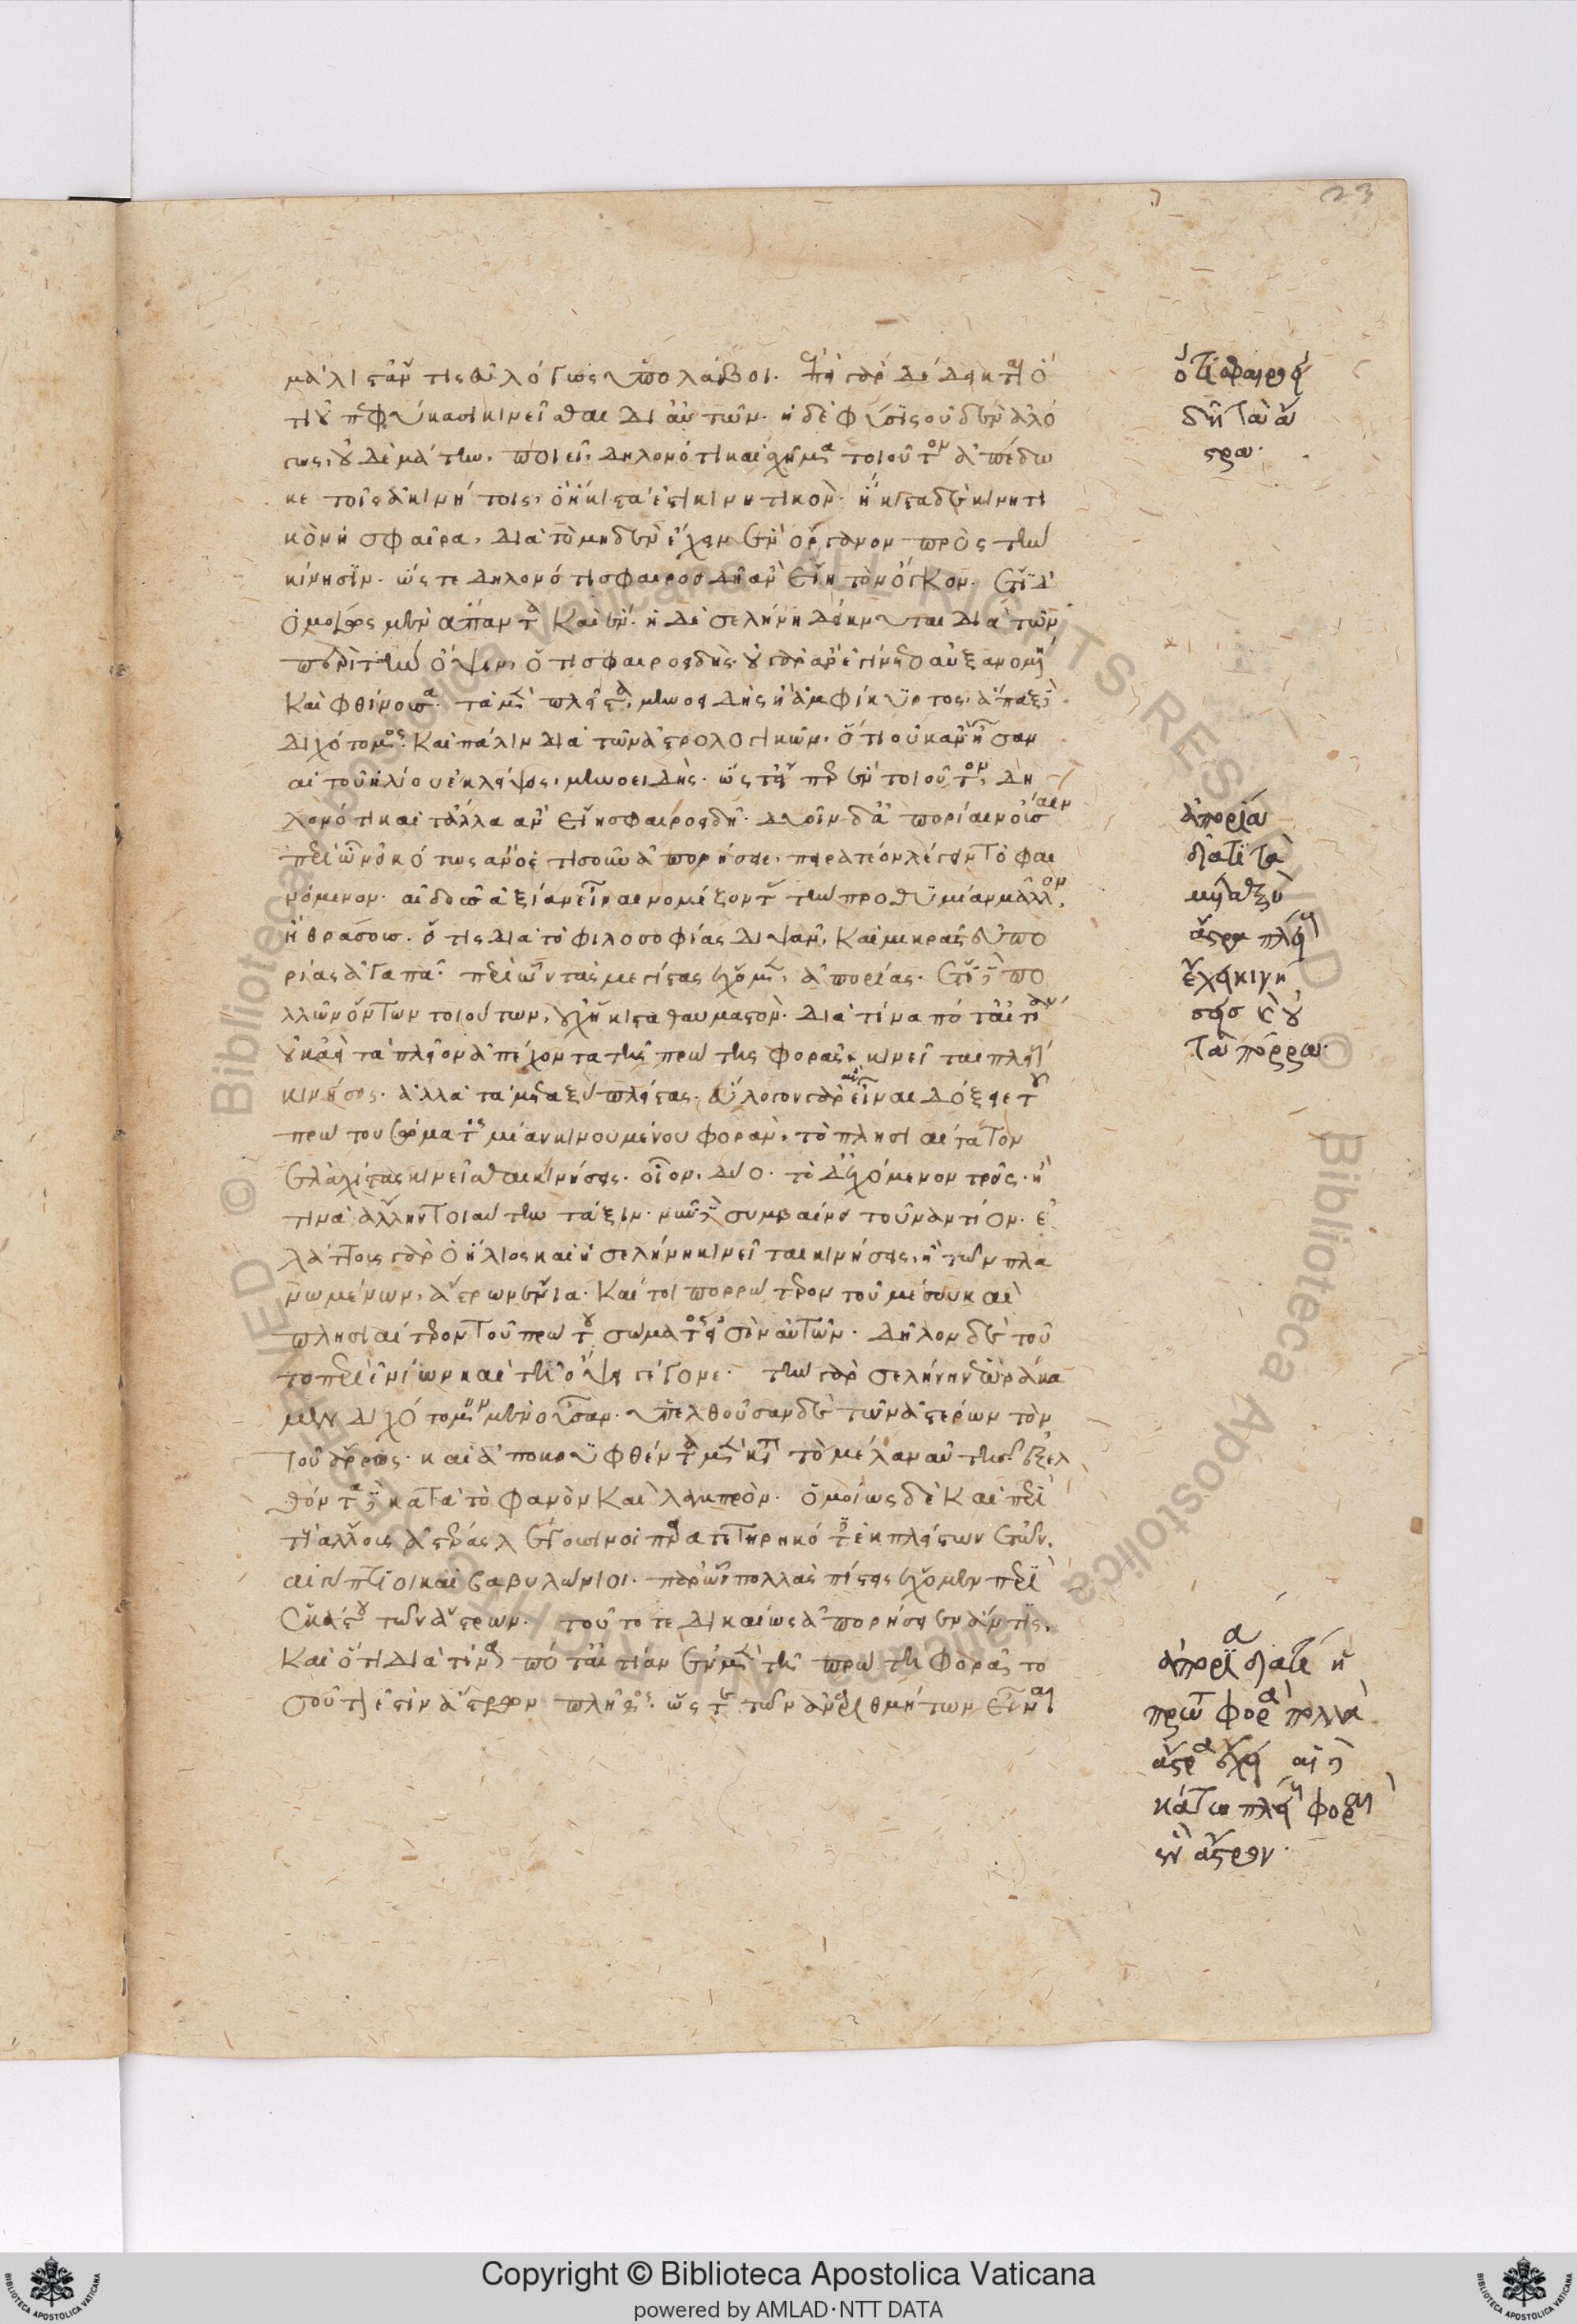 μάλιστ' ἄν τις εὐλόγως ὑπολάβοι. ἐπεὶ γὰρ δέδεικται ὅ
τι οὐ πεφύκασι κινεῖσθαι δι' αὑτῶν. ἡ δὲ φύσις οὐδὲν ἀλό
γως, οὐδὲ μάτην ποιεῖ, δηλονότι καὶ σχῆμα τοιοῦτον ἀπέδω
κε τοῖς ἀκινήτοις, ὃ ἥκιστά ἐστι κινητικόν. ἥκιστα δὲ κινητι
κὸν ἡ σφαῖρα, διὰ τὸ μηδὲν ἔχειν ἓν ὄργανον πρὸς τὴν
κίνησιν. ὥστε δηλονότι σφαιροειδῆ ἂν εἴη τὸν ὄγκον. ἔτι δ'
ὁμοίως μὲν ἅπαντα καὶ ἕν. ἡ δὲ σελήνη δείκνυται διὰ τῶν
περὶ τὴν ὄψιν, ὅτι σφαιροειδής. οὐ γὰρ ἂν ἐγίνετο αὐξανομένη
καὶ φθίνουσα τὰ μὲν πλεῖστα, μηνοειδὴς ἢ ἀμφίκυρτος, ἅπαξ δὲ
διχότομος. καὶ πάλιν διὰ τῶν ἀστρολογικῶν, ὅτι οὐκ ἂν ἦσαν
αἱ τοῦ ἡλίου ἐκλείψεις, μηνοειδεῖς. ὥστ' εἴπερ ἓν τοιοῦτον, δη
λονότι καὶ τἆλλα ἂν εἴη σφαιροειδῆ. δυοῖν δ' ἀπορίαιν οὔσαιν
περὶ ὧν εἰκότως ἂν ὁστισοῦν ἀπορήσειε, πειρατέον λέγειν τὸ φαι
νόμενον. αἰδοῦς ἀξίαν εἶναι νομίζοντας τὴν προθυμίαν μᾶλλον,
ἢ θράσους. εἴ τις διὰ τὸ φιλοσοφίας διψῆν, καὶ μικρὰς εὐπο
ρίας ἀγαπᾷ περὶ ὧν τὰς μεγίστας ἔχομεν ἀπορίας. ἔστι δὲ πο
λλῶν ὄντων τοιούτων, οὐχ ἥκιστα θαυμαστόν. διὰ τίνα ποτ' αἰτίαν
οὐκ ἀεὶ τὰ πλεῖον ἀπέχοντα τῆς πρώτης φορᾶς κινεῖται πλείους
κινήσεις. ἀλλὰ τὰ μεταξὺ πλείστας. εὔλογον γὰρ ἂν εἶναι δόξειε τοῦ
πρώτου σώματος μίαν κινουμένου φοράν, τὸ πλησιαίτατον
ἐλαχίστας κινεῖσθαι κινήσεις. οἷον, δύο. τὸ δ' ἐχόμενον τρεῖς. ἤ
τινα ἄλλην τοιαύτην τάξιν. νῦν δὲ συμβαίνει τοὐναντίον. ἐ
λάττους γὰρ ὁ ἥλιος καὶ ἡ σελήνη κινεῖται κινήσεις, ἢ τῶν πλα
νωμένων, ἄστρων ἔνια. καίτοι πορρώτερον τοῦ μέσου καὶ
πλησιαίτερον τοῦ πρώτου σώματος εἰσὶν αὐτῶν. δῆλον δὲ τοῦ
το περὶ ἐνίων καὶ τῇ ὄψει γέγονε. τὴν γὰρ σελήνην ἑωράκα
μεν διχότομον μὲν οὖσαν. ὑπελθοῦσαν δὲ τῶν ἀστέρων τὸν
τοῦ ἄρεος. καὶ ἀποκρυφθέντα μὲν κατὰ τὸ μέλαν αὐτῆς. ἐξελ
θόντα δὲ κατὰ τὸ φανὸν καὶ λαμπρόν. ὁμοίως δὲ καὶ περὶ
τοὺς ἄλλους ἀστέρας λέγουσιν οἱ πάλαι τετηρηκότες ἐκ πλείστων ἐτῶν,
αἰγύπτιοι καὶ βαβυλώνιοι. παρ' ὧν πολλὰς πίστεις ἔχομεν περὶ
ἑκάστου τῶν ἄστρων. τοῦτό τε δικαίως ἀπορήσειεν ἄν τις,
καὶ ὅτι διὰ τίνα ποτ' αἰτίαν ἐν μὲν τῇ πρώτῃ φορᾷ το
σοῦτόν ἐστιν ἄστρων πλῆθος. ὥστε τῶν ἀναριθμήτων εἶναι
ὅτι σφαιροει
δῆ τὰ ἄ
στρα.
ἀπορία
διατί τὰ
μεταξὺ
ἄστρα πλείους
ἔχει κινή
σεις καὶ οὐ
τὰ πόρρω.
ἀπορία διατί ἡ
πρώτη φορὰ πολλὰ
ἄστρα ἔχει αἱ δὲ
κάτω πλείους φοραὶ
ἓν ἄστρον.